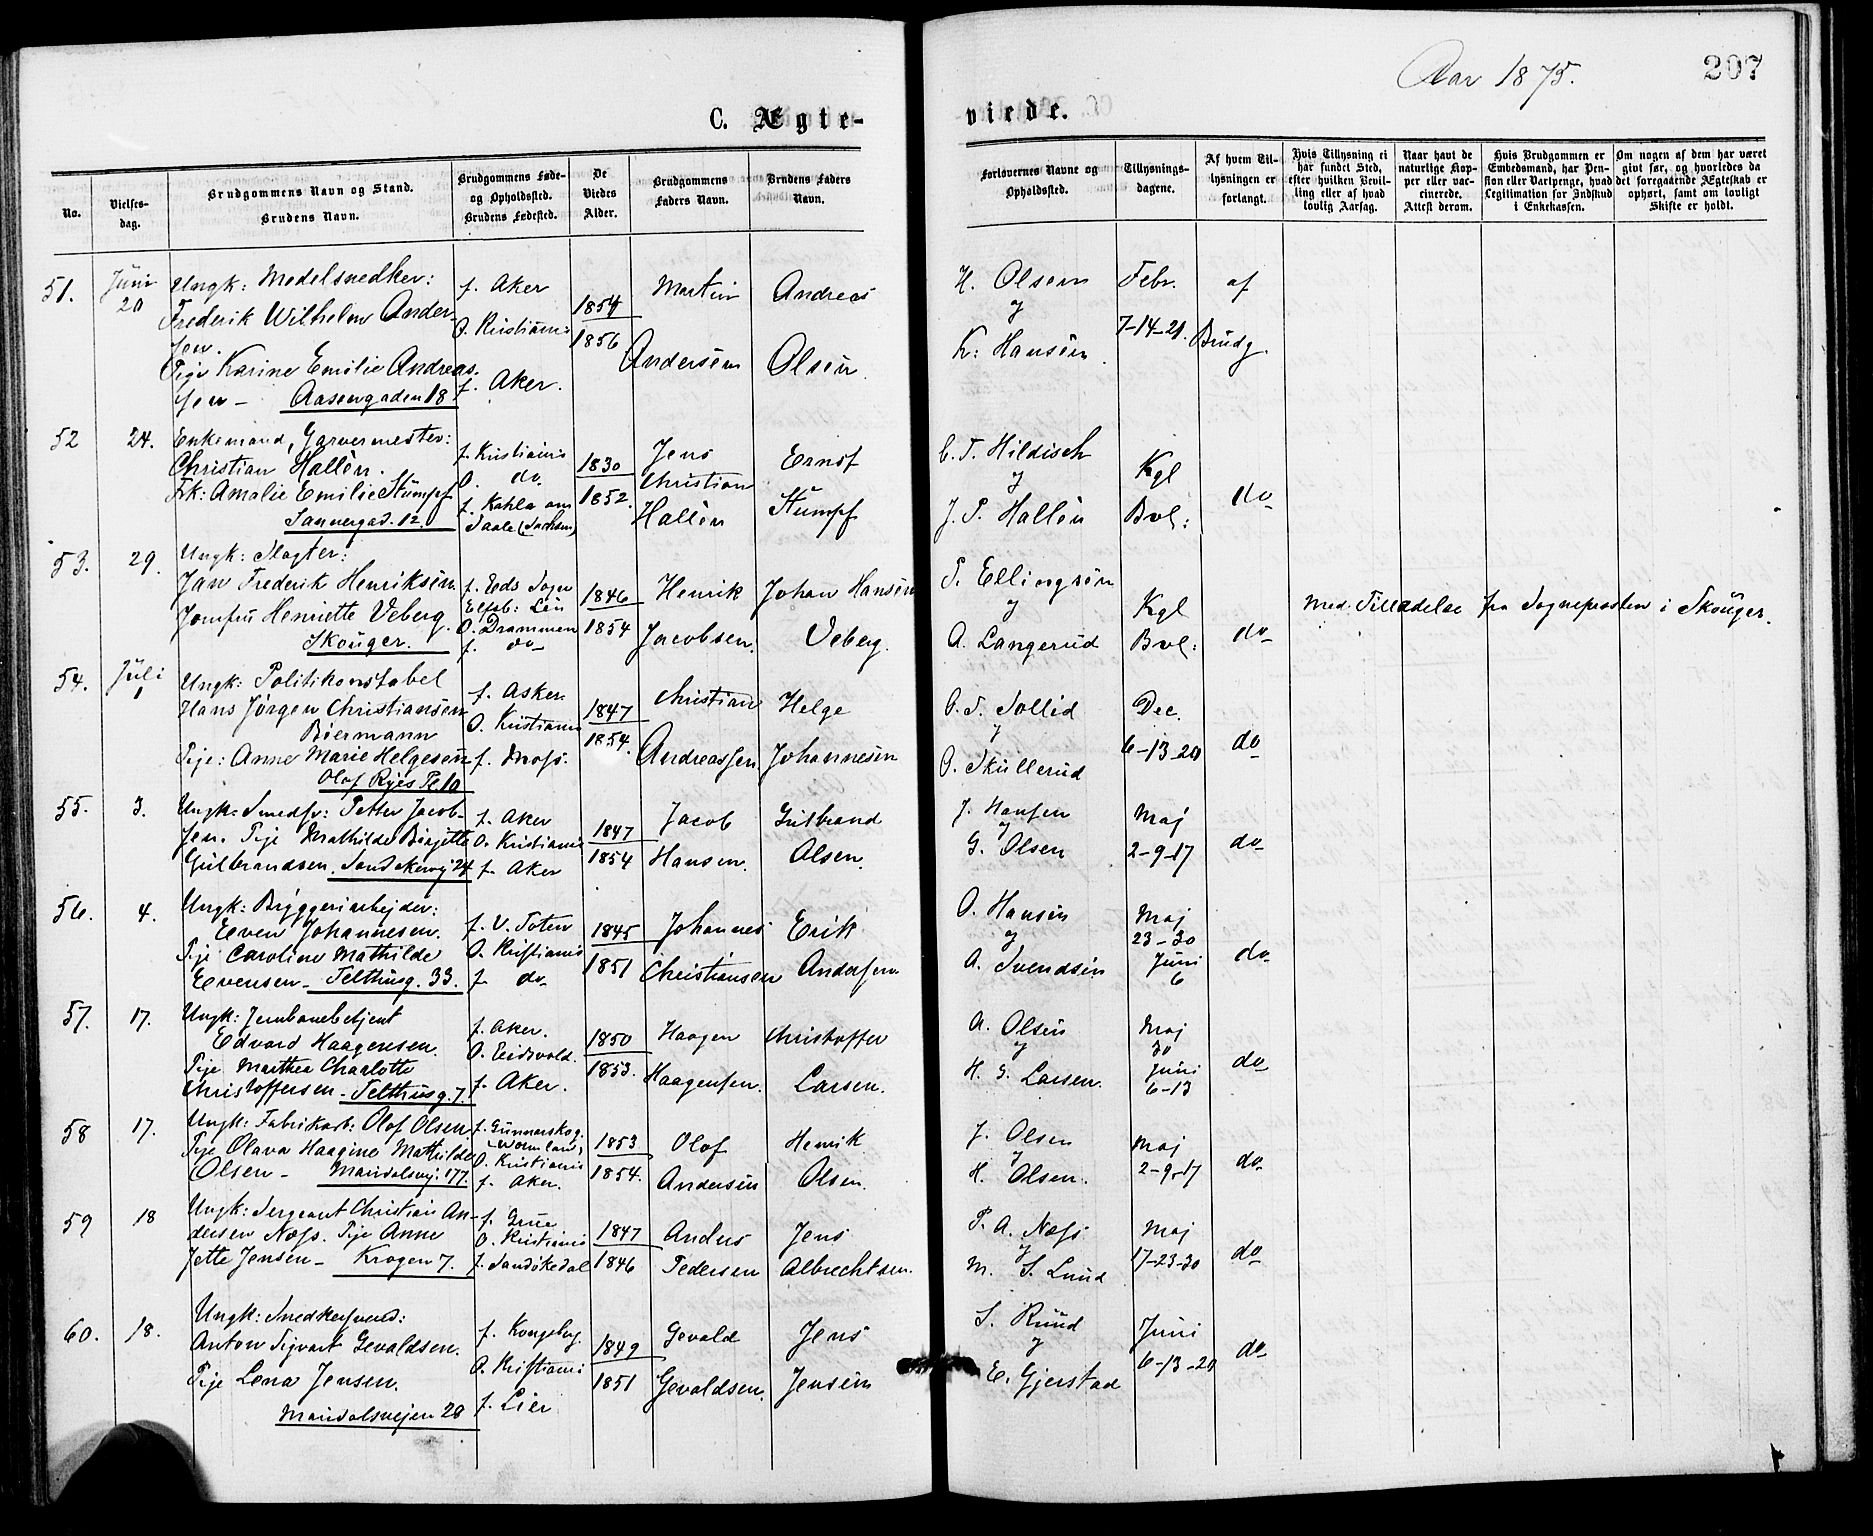 Aar 1875.
207
C. Ægte-
viede.
No.
Vielses-
dag.
Brudgommens Navn og Stand.
Brudens Navn.
Brudgommens Føde-
og Opholdssted.
Brudens Fødested.
De
Viedes
Alder.
Brudgommens
Faders Navn.
Brudens Faders
Navn.
Forlovernes Navne og
Opholdssted.
Tillysnings-
dagene.
Af hvem Til-
lysningen er
forlangt.
Hvis Tillysning ei
har fundet Sted,
efter hvilken Bevil-
ling eller af hvad
lovlig Aarsag.
Naar havt de
naturlige Kop-
per eller vac-
cinerede.
Attest derom.
Hvis Brudgommen er
Embedsmand, har Pen-
sion eller Vartpenge, hvad
Legitimation for Indskud
i Enkekassen.
Om nogen af dem har været
givt før, og hvorledes da
det foregaaende Ægteskab er
ophørt, samt om lovligt
Skifte er holdt.
51.
Juni
20
Ungk: Modelsnedker:
Frederik Wilhelm Ander-
sen.
Pige Karine Emilie Andreas-
sen - Aasengaden 18
f. Aker
O. Kristiania
f. Aker.
1854
1856
Martin
Andersen
Andreas
Olsen.
H. Olsen
og
K: Hansen
Febr.
7-14-21.
af
Brudg.
52
24.
Enkemand, Garvermester:
Christian Hallèn.
Frk: Amalie Emilie Stumpf
Sannergad. 12.
f. Kristiania
O. do
f. Kahla am
Saale (Sachsen)
1830
1852.
Jens
Christian
Hallèn
Ernst
Stumpf
C. T. Hildisch
og
J. P. Hallèn
Kgl
Bvl:
do
53.
29.
Ungk: Slagter:
Jan Frederik Henriksen.
Jomfru Henriette Veberg.
Skouger.
f. Eds Sogn
Elfsb: Len
O. Drammen
f. do
1846
1854
Henrik
Jacobsen.
Johan Hansen
Veberg.
P. Ellingsen
og
A. Langerud
Kgl
Bvl:
do
Med Tilladelse fra Sognepresten i Skouger.
54.
Juli
1
Ungk: Politikonstabel
Hans Jørgen Christiansen
Biermann
Pige: Anne Marie Helgesen
Olaf Ryes Pl. 10
f. Asker
O. Kristiania
f. Moss.
1847
1854.
Christian
Andreassen
Helge
Johannesen
O. T. Sollid
og
O. Skullerud
Dec.
6-13-20
do
55.
3.
Ungk: Smedsv: Petter Jacob-
sen. Pige Mathilde Birgitte
Gulbrandsen. Sandakervg 24
f. Aker
O. Kristiania
f. Aker
1847
1854
Jacob
Hansen.
Gulbrand
Olsen.
J. Hansen
og
G. Olsen
Maj
2-9-17
do
56.
4.
Ungk: Bryggeriarbejder:
Even Johannesen.
Pige Caroline Mathilde
Evensen - Telthusg. 33.
f. V. Toten
O. Kristiania
f. do
1845
1851
Johannes
Christiansen
Erik
Andersen
O. Hansen
og
A. Svendsen
Maj
23-30
Juni
6
do
57.
17.
Ungk: Jernbanebetjent
Edvard Haagensen.
Pige Marthea Charlotte
Christoffersen - Telthusg. 7.
f. Aker.
O. Eidsvold.
f. Aker.
1850
1853.
Haagen
Haagensen.
Christoffer
Larsen.
A. Olsen
og
H. G. Larsen.
Maj
30
Juni
6-13
do
58
17.
Ungk: Fabrikarb: Olof Olsen.
Pige Olava Haagine Mathilde
Olsen - Maridalsvej. 177.
f. Gunnarskog.
Vormland,
O. Kristiania
f. Aker.
1853
1854.
Olof
Andersen
Henrik
Olsen.
J. Olsen
og
H. Olsen.
Maj
2-9-17
do
59
18
Ungk: Sergeant Christian An-
dersen Næss. Pige Anne
Jette Jensen - Krogen 7.
f. Grue
O. Kristiania
f. Sandøkedal
1847
1846
Anders
Pedersen
Jens
Albrechtsen.
P. A. Næss
og
M. S. Lund
Maj
17-23-30
do
60.
18.
Ungk: Snedkersvend:
Anton Sigvart Gevaldsen.
Pige Lena Jensen.
Maridalsvejen 20
f. Kongsbg.
O. Kristiania
f. Lier
1849
1851
Gevald
Gevaldsen.
Jens
Jensen
S. Ruud
og
E. Gjerstad
Juni
6-13-20
do